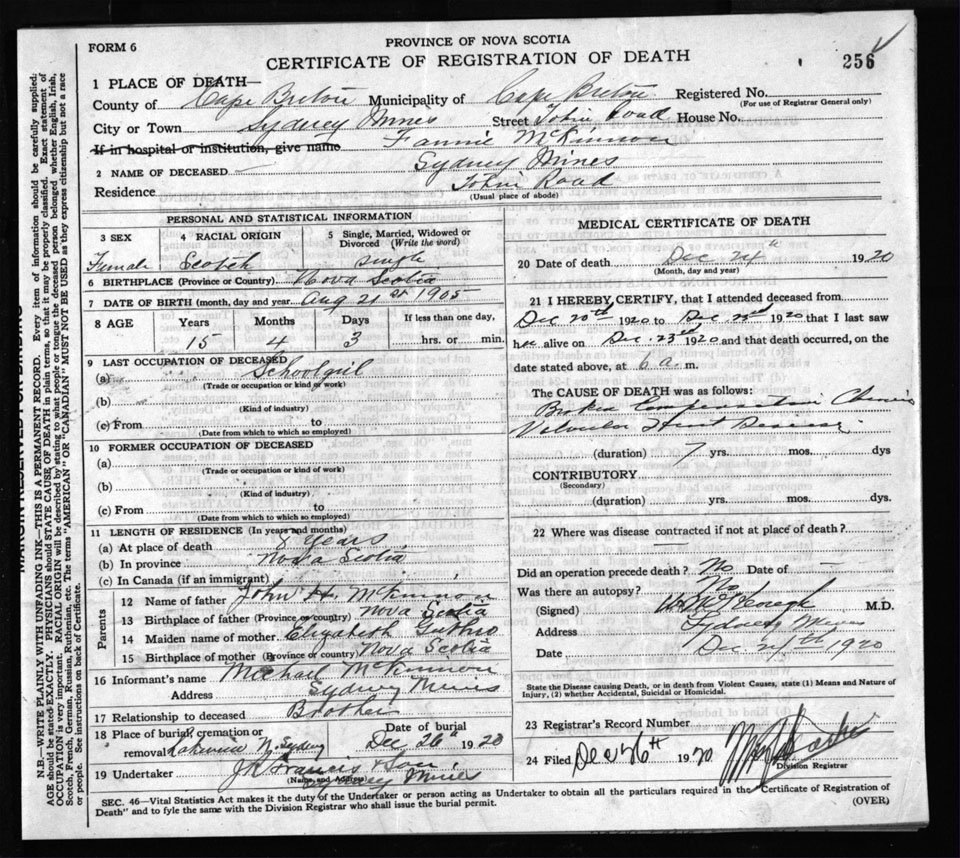 FORM 6
PROVINCE OF NOVA SCOTIA
CERTIFICATE OF REGISTRATION OF DEATH
256
1 PLACE OF DEATH—
County of Cape Breton Municipality of Cape Breton Registered No.
(For use of Registrar General only)
City or Town Sydney Mines Street Road House No.
If in hospital or institution, give name Fannie McKinnon
2 NAME OF DECEASED Sydney Mines
Residence Road
(Usual place of abode)
PERSONAL AND STATISTICAL INFORMATION
3 SEX
Female
4 RACIAL ORIGIN
Scotch
5 Single, Married, Widowed or Divorced (Write the word)
single
6 BIRTHPLACE (Province or Country) Nova Scotia
7 DATE OF BIRTH (month, day and year) Aug 21st 1905
8 AGE Years Months Days If less than one day,
15 4 3 hrs. or min.
9 LAST OCCUPATION OF DECEASED
(a) Schoolgirl
(Trade or occupation or kind of work)
(b)
(Kind of industry)
(c) From to
(Date from which to which so employed)
10 FORMER OCCUPATION OF DECEASED
(a)
(Trade or occupation or kind of work)
(b)
(Kind of industry)
(c) From to
(Date from which to which so employed)
11 LENGTH OF RESIDENCE (in years and months)
(a) At place of death years
(b) In province Nova Scotia
(c) In Canada (if an immigrant)
Parents
12 Name of father John H. McKinnon
13 Birthplace of father (Province or country) Nova Scotia
14 Maiden name of mother Elizabeth
15 Birthplace of mother (Province or country) Nova Scotia
16 Informant's name Michael McKinnon
Address Sydney Mines
17 Relationship to deceased Brother
18 Place of burial, cremation or removal N. Sydney Date of burial Dec 26th 1920
19 Undertaker Francis & Son
(Name and Address) Sydney Mines
MEDICAL CERTIFICATE OF DEATH
20 Date of death Dec 24th 1920
(Month, day and year)
21 I HEREBY CERTIFY, that I attended deceased from
Dec 20th 1920 to Dec 23rd 1920 that I last saw
her alive on Dec. 23rd 1920 and that death occurred, on the
date stated above, at 6 a. m.
The CAUSE OF DEATH was as follows:
Broken Compensation Chronic
Valvular Heart Disease
(duration) 7 yrs. mos. dys
CONTRIBUTORY
(Secondary)
(duration) yrs. mos. dys.
22 Where was disease contracted if not at place of death?
Did an operation precede death? No Date of —
Was there an autopsy? No
(Signed) M.D.
Address Sydney Mines
Date Dec 24th 1920
State the Disease causing Death, or in death from Violent Causes, state (1) Means and Nature of
Injury, (2) whether Accidental, Suicidal or Homicidal.
23 Registrar's Record Number
24 Filed Dec 26th 1920
Division Registrar
SEC. 46—Vital Statistics Act makes it the duty of the Undertaker or person acting as Undertaker to obtain all the particulars required in the "Certificate of Registration of
Death" and to fyle the same with the Division Registrar who shall issue the burial permit.
(OVER)
N.B.—WRITE PLAINLY WITH UNFADING INK—THIS IS A PERMANENT RECORD. Every item of information should be carefully supplied;
AGE should be stated EXACTLY. PHYSICIANS should STATE CAUSE OF DEATH in plain terms, so that it may be properly classified. Exact statement of
OCCUPATION is very important. RACIAL ORIGIN will be described by stating to what people or tongue the deceased person belonged whether English, Irish,
Scotch, French, German, Russian, Ruthenian, etc. The terms "AMERICAN" OR "CANADIAN" MUST NOT BE USED as they express citizenship but not a race
or people. See instructions on back of Certificate.